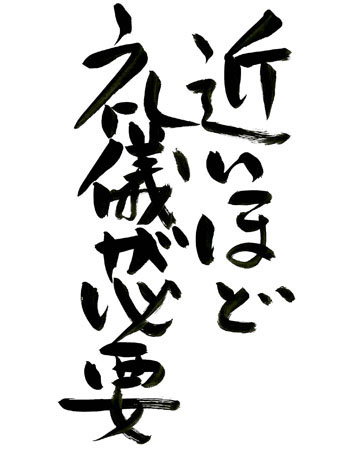 近いほど
礼儀が必要